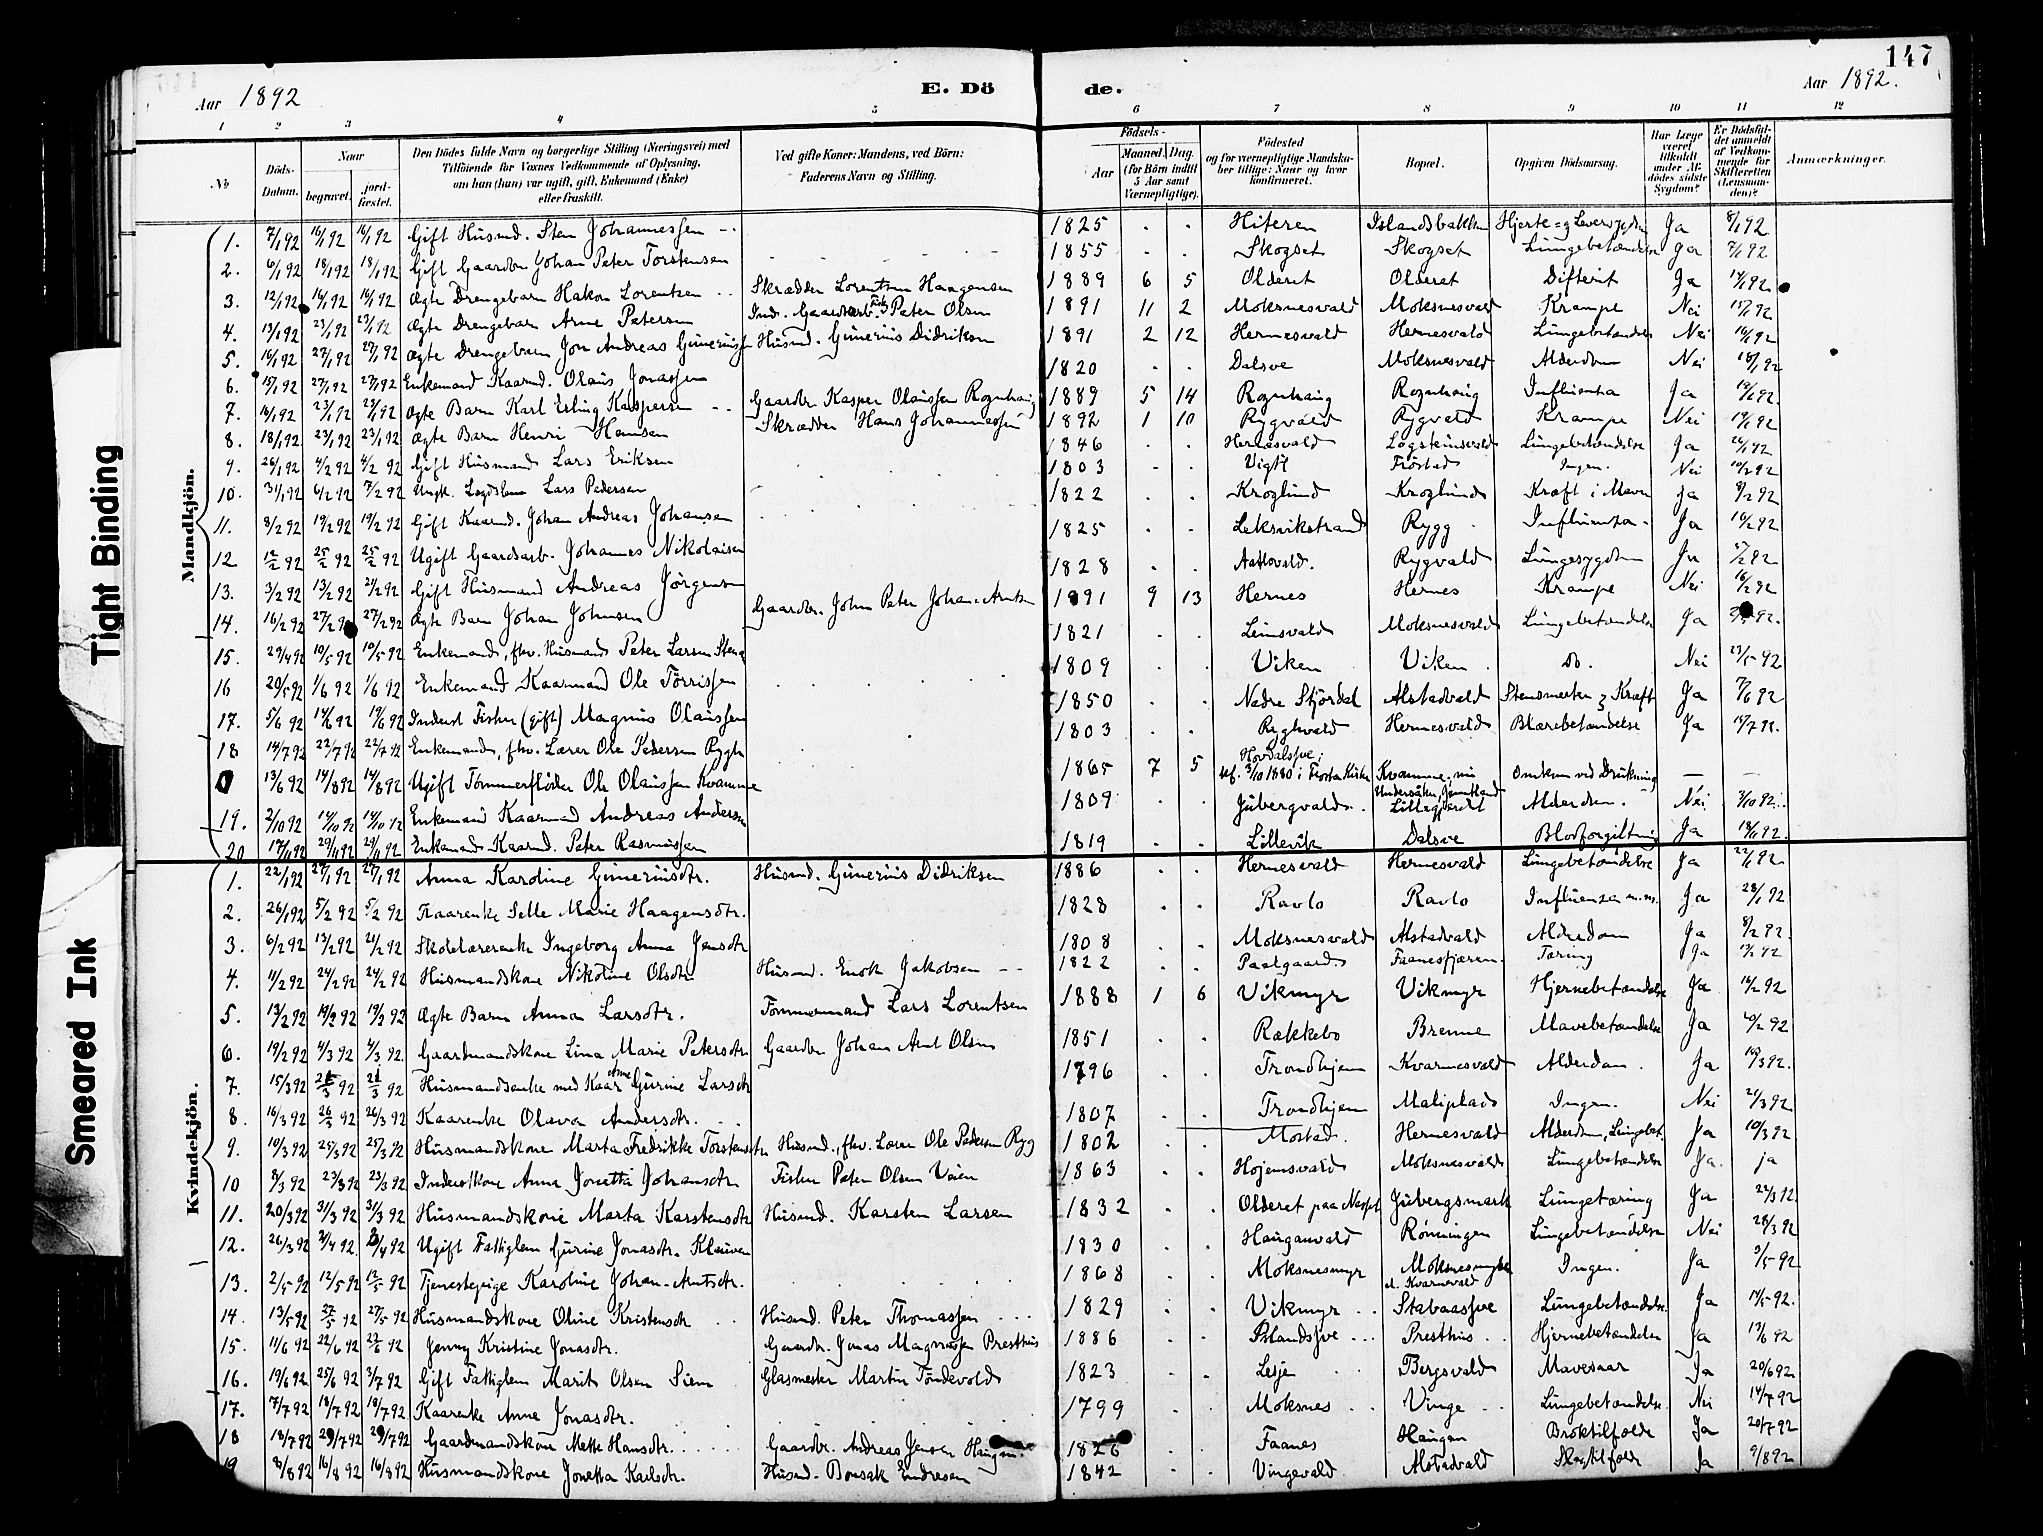 147
Aar 1892
E. Dö
de.
Aar 1892.
1 2 3 4 5 6 7 8 9 10 11 12
№
Döds-Datum.
Naar
begravet.
jord-fæstet.
Den Dödes fulde Navn og borgerlige Stilling (Næringsvei) med
Tilföiende för Voxnes Vedkommende af Oplysning,
om han (hun) var ugift, gift, Enkemand (Enke)
eller fraskilt.
Ved gifte Koner: Mandens, ved Börn:
Faderens Navn og Stilling.
Födsels-
Aar
Maaned. Dag.
(for Börn indtil 5 Aar samt Værnepligtige).
Födested
og for værnepligtige Mandskaber tillige: Naar og hvor konfirmeret.
Bopæl.
Opgiven Dödsaarsag.
Har Læge været tilkaldt under Afdödes sidste Sygdom?
Er Dödsfaldet anmeldt af Vedkommende for Skifteretten (Lensmanden)?
Anmærkninger.
Mandkjön.
1. 7/1 92 16/1 92 16/1 92 Gift Husmd. Sten Johannessen 1825 Hiteren Islandsbakken Hjerte= og Leversygdom Ja 8/1 92
2. 6/1 92 18/1 92 18/1 92 Gift Gaardbr Johan Peter Torstensen 1855 Skogset Skogset Lungebetændelse Ja 7/1 92
3. 12/1 92 16/1 92 16/1 92 Ægte Drengebarn Hakon Lorentsen Skrædder Lorentsen Haagensen 1889 6 5 Olderet Olderet Difterit Ja
4. 13/1 92 23/1 92 23/1 92 Ægte Drengebarn Arne Petersen Ind. Gaardsarb. Peter Olsen 1891 11 2 Moksnesvald Moksnesvald Krampe Nei 15/1 92
5. 16/1 92 27/1 92 27/1 92 Ægte Drengebarn Jon Andreas Guneriussen Husmd. Gunerius Didriksen 1891 2 12 Hernesvald Hernesvald Lungebetændelse Nei 16/1 92
6. 15/1 92 27/1 92 27/1 92 Enkemand Kaarmd. Olaus Jonassen 1820 Dalsve Moksnesvald Alderdom Nei 18/1 92
7. 16/1 92 23/1 92 23/1 92 Ægte Barn Karl Erling Kaspersen Gaardbr Kasper Olaussen Rognhaug 1889 5 14 Rognhaug Rognhaug Influenza Ja 19/1 92
8. 18/1 92 23/1 92 23/1 92 Ægte Barn Henri Hansen Skrædder Hans Johannessen 1892 1 10 Rygvald Rygvald Krampe Nei 19/1 92
9. 26/1 92 4/2 92 4/2 92 Gift Husmand Lars Eriksen 1846 Hernesvald Lagsteinsvald Lungebetændelse Ja
10. 31/1 92 6/2 92 7/2 92 Ungk. Lægdslem Lars Pedersen 1803 Vigtil Frøstad Ingen. Nei 10/2 92
11. 8/2 92 19/2 92 19/2 92 Gift Kaarmd. Johan Andreas Johansen 1822 Kroglund Kroglund Kræft i Maven Ja 9/2 92
12 12/2 92 25/2 92 25/2 92 Ugift Gaardsarb. Johannes Nikolaisen 1825 Leksvikstrand Rygg Influenza Ja 16/2 92
13. 3/2 92 13/2 92 21/2 92 Gift Husmand Andreas Jørgensen 1828 Rygvald Lungesygdom Ja
14. 16/2 92 27/2 92 27/2 92 Ægte Barn Johan Johnsen Gaardbr. John Peter Johan-Arntsen 1891 9 13 Hernes Hernes Krampe Nei 16/2 92
15. 29/4 92 10/5 92 10/5 92 Enkemand, fhv. Husmand Peter Larsen 1821 Leinsvald Moksnesvald Lungebetændelse Ja
16 20/5 92 1/6 92 1/6 92 Enkemand Kaarmand Ole Tørrissen 1809 Viken Viken do. Nei 23/5 92
17. 5/6 92 14/6 92 14/6 92 Inderst Fisker (gift) Magnus Olaussen 1850 Nedre Stjørdal Alstadvald Stensmerter og Kræft Ja 7/6 92
18 14/7 92 22/7 92 22/7 92 Enkemand, fhv. Lærer Ole Pedersen Rygh 1803 Ryghvald Hernesvald Blærebetændelse Ja 15/7 92.
0 13/6 92 14/8 92 14/8 92 Ugift Tømmerfløder Ole Olaussen Kvamme 1865 7 5 Hovdalssve; kf. 3/10 1880 i Frosta Kirke Kvamme, nu Undersåker, Jemtland Omkom ved Drukning — —
19. 2/10 92 14/10 92 14/10 92 Enkemand Kaarmand Andreas Andersen 1809 Jubergvald. Lillegjerdet Alderdom. Nei 3/10 92.
20 17/11 92 29/11 92 29/11 92 Enkemand Kaarmd. Peter Rasmussen 1819 Lillevik Dalsve Blodforgiftning Ja 19/11 92.
Kvindekjön.
1. 22/1 92 27/1 92 27/1 92 Anna Karoline Guneriusdtr. Husmd. Gunerius Didriksen 1886 Hernesvald Hernesvald Lungebetændelse Ja 22/1 92
2. 26/1 92 5/2 92 5/2 92 Kaarenke Selle Marie Haagensdtr. 1828 Ravlo Ravlo Influenza m.m. Ja 28/1 92
3. 6/2 92 13/2 92 21/2 92 Skolelærerenk Ingeborg Anna Jensdtr 1808 Moksnesvald Alstadvald Alderdom Ja 8/2 92.
4. 11/2 92 24/2 92 24/2 92 Husmandskone Nikoline Olsdtr. Husmd. Enok Jakobsen 1822 Paalgaard Faanesfjæren Tæring Ja 12/2 92
5. 13/2 92 19/2 92 19/2 92 Ægte Barn Anna Larsdtr. Tømmermand Lars Lorentsen 1888 1 6 Vikmyr Vikmyr Hjernebetændelse Ja 14/2 92
6. 19/2 92 4/3 92 4/3 92 Gaardmandskone Lina Marie Petersdtr Gaardbr Johan Arnt Olsen 1851 Rækkebo Brenne Mavebetændelse Ja 20/2 92
7. 15/3 92 21/3 92 21/3 92 Husmandsenke med Kaar Anne Gurine Larsdtr 1796 Trondhjem Kvarnesvald Alderdom. Ja 19/3 92.
8. 16/3 92 26/3 92 26/3 92 Kaarenke Olava Andersdtr. 1807 Trondhjem Maliplads Ingen. Nei 21/3 92
9. 10/3 92 25/3 92 25/3 92 Husmandskone Marta Fredrikke Torstensdtr Husmd., fhv. Lærer Ole Pedersen Rygg 1802 Mostad. Hernesvald Alderdom, Lungebet. Ja 10/3 92
10 8/3 92 23/3 92 23/3 92 Inderstkone Anna Jonetta Johansdtr Fisker Peter Olsen Veien 1863 Hojemsvald Moksnesvald Lungebetændelse Ja. ja
11. 20/3 92 31/3 92 31/3 92 Husmandskone Marta Karstensdtr Husmd. Karsten Larsen 1832 Olderet paa Nesset Jubergsmark Lungetæring Ja 22/3 92.
12. 26/3 92 2/4 92. 3/4 92 Ugift Fattiglem Gurine Jonasdtr. Klæven 1830 Hauganvald Rønningen Lungebetændelse Nei 28/3 92
13. 2/5 92 12/5 92 12/5 92 Tjenestepige Karoline Johan-Arntsdtr. 1868 Moksnesmyr Moksnesmyr u. Kvarnevald Ingen. Ja 3/5 92
14. 13/5 92 27/5 92 27/5 92 Husmandskone Oline Kristensdtr Husmd. Peter Thomassen 1829 Vikmyr Stabaassve Lungebetændelse. Ja 14/5 92.
15. 11/6 92 22/6 92 22/6 92 Jenny Kristine Jonasdtr. Gaardbr. Jonas Magnussen Presthus 1886 Presthus Hjernebetændelse Ja 12/6 92
16. 19/6 92 25/6 92 3/7 92 Gift Fattiglem Marit Olsen Siem Glasmester Martin Tøndevold 1823 Lesje Bergsvald Mavesaar Ja 20/6 92.
17. 7/7 92 18/7 92 18/7 92 Kaarenke Anne Jonasdtr. 1799 Moksnes Vinge Lungebetændelse. Nei 14/7 92
18 18/7 92 29/7 92 29/7 92 Gaardmandskone Mette Hansdtr. Gaardbr. Andreas Jensen Haugan. 1826 Faanes Haugan Broktilfælde Ja 20/7 92
19 8/8 92 16/8 92 16/8 92 Husmandskone Jonetta Karlsdtr. Husmd. Bonsak Endresen 1842 Vingevald Alstadvald Slagtilfælde Ja 9/8 92
Tight Binding
Smeared Ink